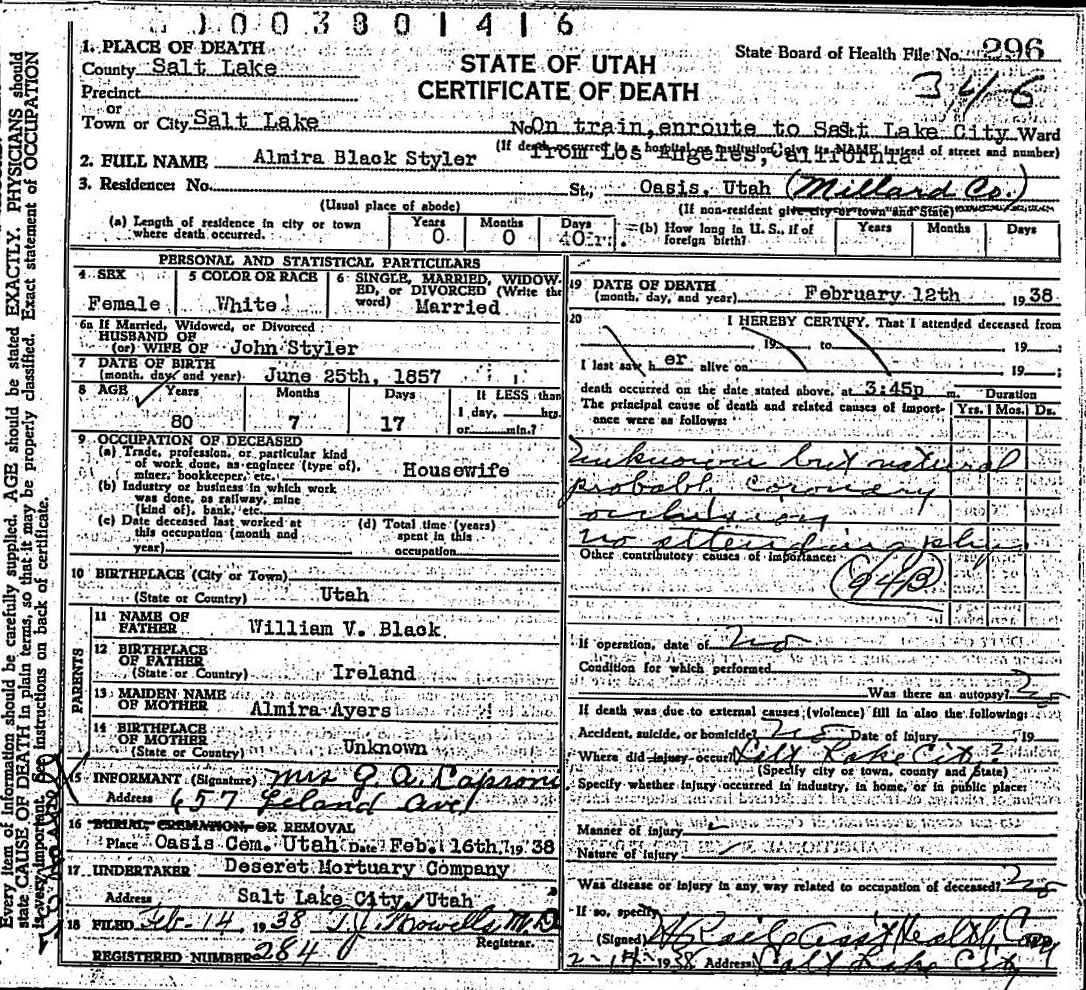 1003801416
1. PLACE OF DEATH
County Salt Lake
Precinct
or
Town or City Salt Lake
STATE OF UTAH
CERTIFICATE OF DEATH
State Board of Health File No. 296
346
No. On train, enroute to Salt Lake City Ward
(If death occurred in a hospital or institution, give its NAME instead of street and number)
from Los Angeles, California
2. FULL NAME Almira Black Styler
3. Residence: No. St., Oasis, Utah (Millard Co.)
(Usual place of abode) (If non-resident give city or town and State)
(a) Length of residence in city or town where death occurred. Years 0 Months 0 Days
(b) How long in U. S., if of foreign birth? Years Months Days
PERSONAL AND STATISTICAL PARTICULARS
4 SEX Female
5 COLOR OR RACE White
6 SINGLE, MARRIED, WIDOWED, or DIVORCED (Write the word) Married
6a If Married, Widowed, or Divorced
HUSBAND OF
(or) WIFE OF John Styler
7 DATE OF BIRTH
(month, day, and year) June 25th, 1857
8 AGE Years 80 Months 7 Days 17 If LESS than 1 day, hrs. or min.?
9 OCCUPATION OF DECEASED
(a) Trade, profession, or particular kind
of work done, as engineer (type of),
miner, bookkeeper, etc. Housewife
(b) Industry or business in which work
was done, as railway, mine
(kind of), bank, etc.
(c) Date deceased last worked at
this occupation (month and
year)
(d) Total time (years)
spent in this
occupation
10 BIRTHPLACE (City or Town)
(State or Country) Utah
PARENTS
11 NAME OF
FATHER William V. Black
12 BIRTHPLACE
OF FATHER
(State or Country) Ireland
13 MAIDEN NAME
OF MOTHER Almira Ayers
14 BIRTHPLACE
OF MOTHER
(State or Country) Unknown
15 INFORMANT (Signature) Mrs G. A.
Address 657 Leland Ave
16 BURIAL, CREMATION, OR REMOVAL
Place Oasis Cem. Utah Date Feb. 16th, 1938
17 UNDERTAKER Deseret Mortuary Company
Address Salt Lake City, Utah
18 FILED Feb-14 1938 T. J. Howells M.D.
Registrar.
REGISTERED NUMBER 284
19 DATE OF DEATH
(month, day, and year) February 12th 1938
20 I HEREBY CERTIFY, That I attended deceased from
19 to 19 ;
I last saw h er alive on 19 ;
death occurred on the date stated above, at 3:45p m.
Duration
The principal cause of death and related causes of importance were as follows:
Yrs. Mos. Ds.
Unknown but natural
probabl. coronary
occlusion
no attending phys
Other contributory causes of importance:
94B
If operation, date of No
Condition for which performed
Was there an autopsy? No
If death was due to external causes (violence) fill in also the following:
Accident, suicide, or homicide? No Date of injury 19
Where did injury occur Salt Lake City?
(Specify city or town, county and State)
Specify whether injury occurred in industry, in home, or in public place:
Manner of injury
Nature of injury
Was disease or injury in any way related to occupation of deceased? No
If so, specify
(Signed) Ass't Health Com
1938 Address Salt Lake City
Every item of information should be carefully supplied. AGE should be stated EXACTLY. PHYSICIANS should
state CAUSE OF DEATH in plain terms, so that it may be properly classified. Exact statement of OCCUPATION
is very important. See instructions on back of certificate.